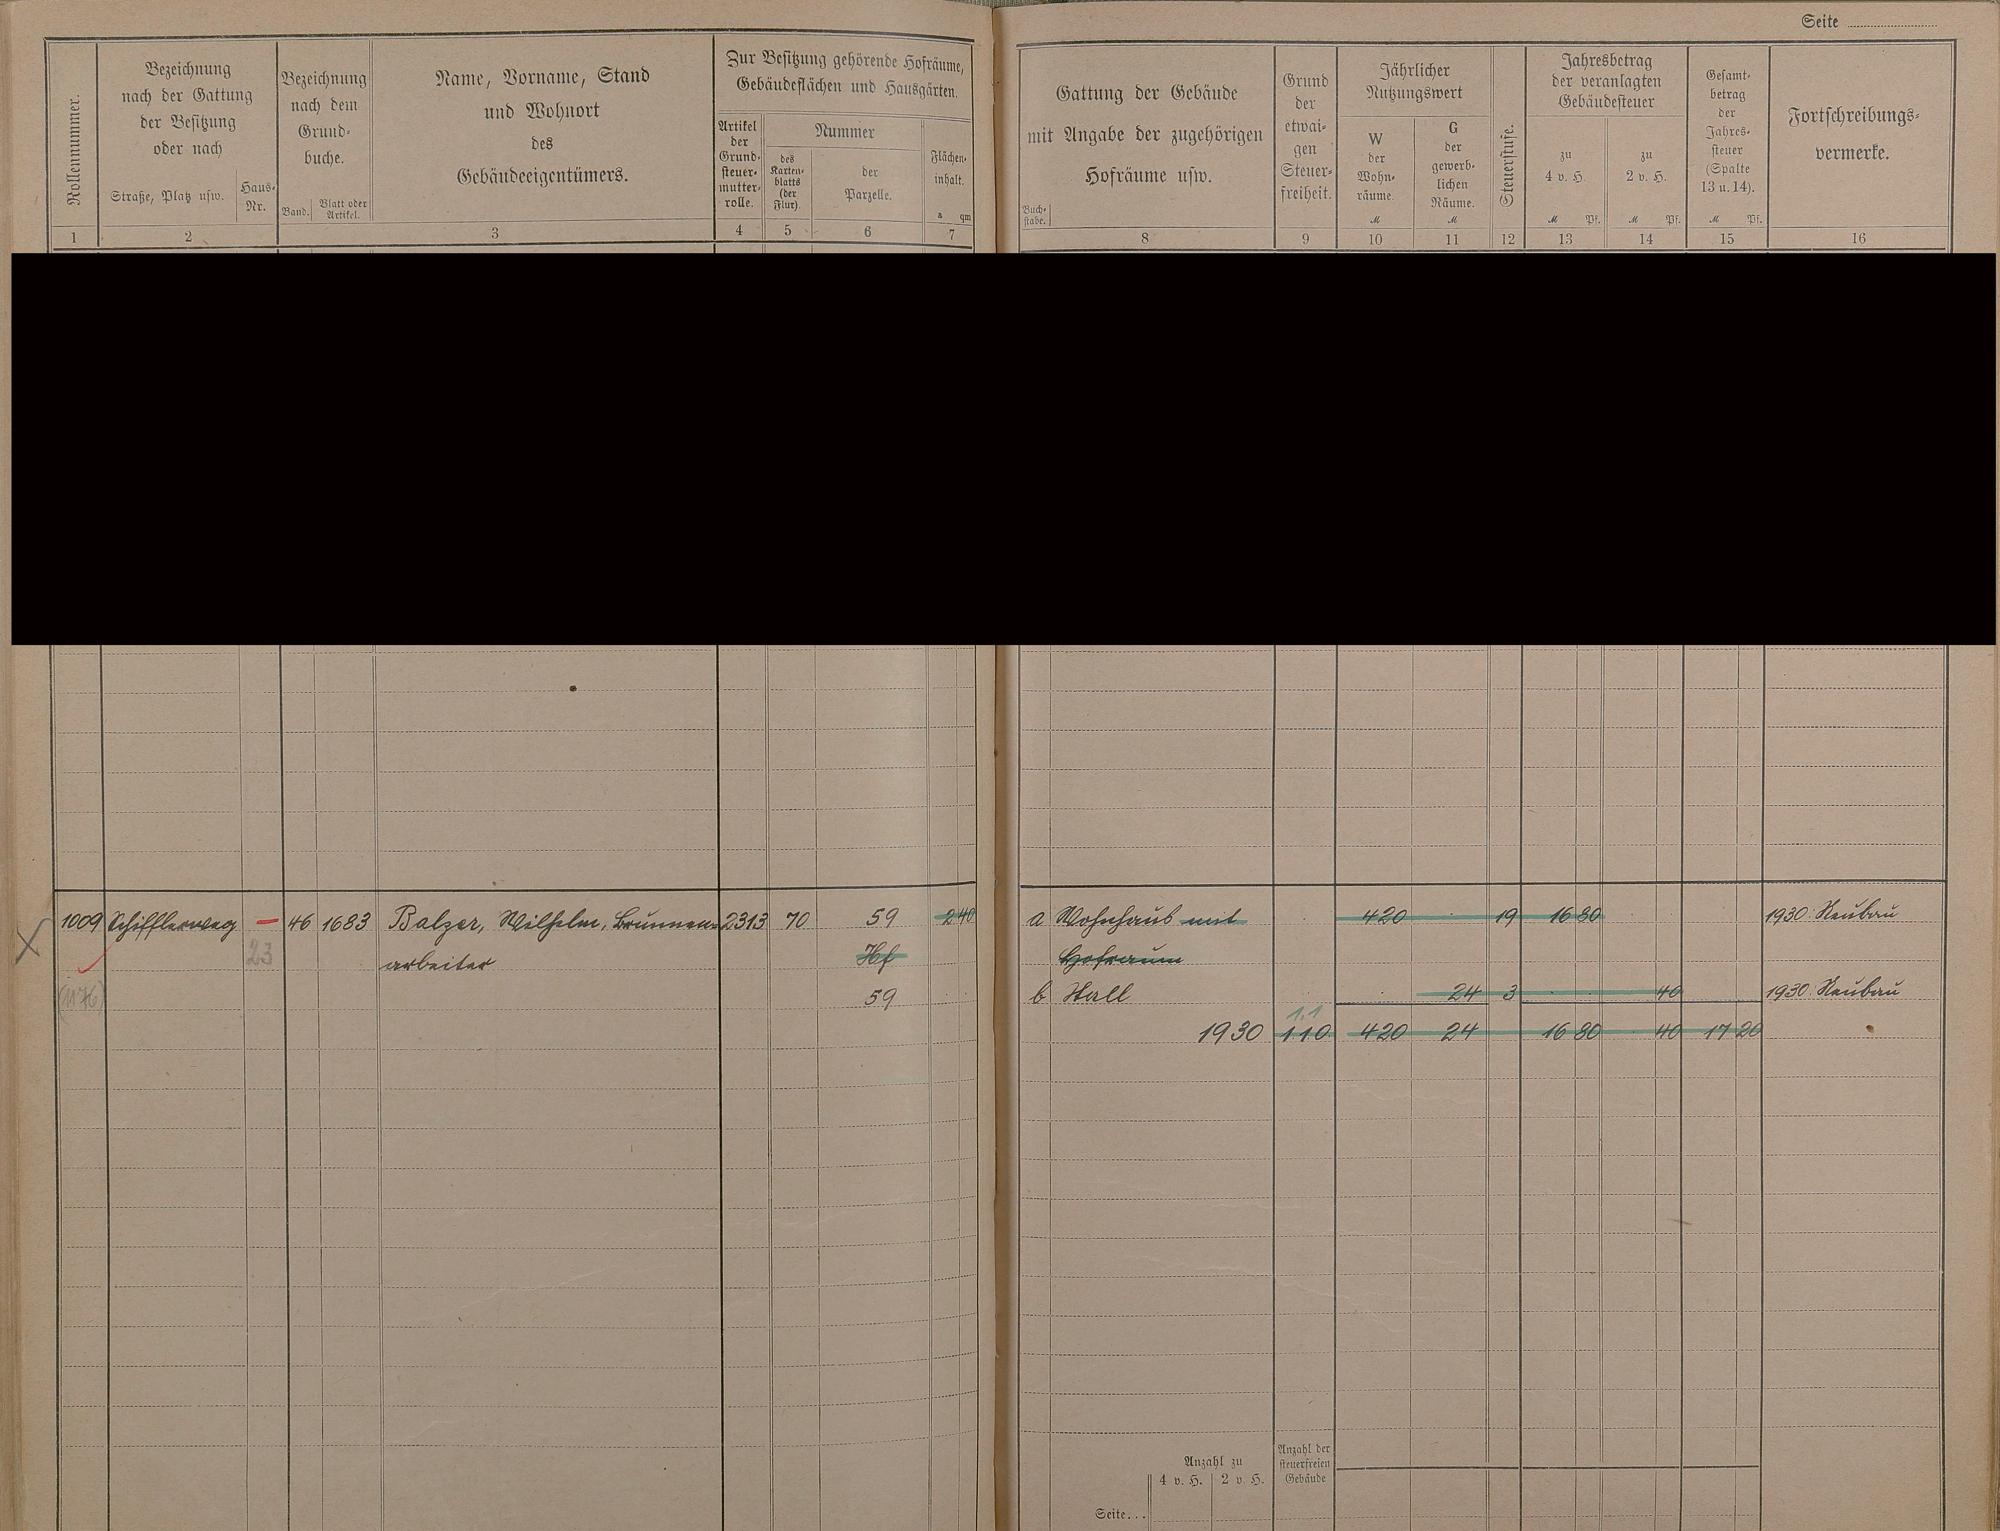 Seite
Rollennummer.
Bezeichnung
nach der Gattung
der Besitzung
oder nach
Straße, Platz usw.
Haus-
Nr.
Bezeichnung
nach dem
Grund-
buche.
Band.
Blatt oder
Artikel.
Name, Vorname, Stand
und Wohnort
des
Gebäudeeigentümers.
Zur Besitzung gehörende Hofräume,
Gebäudeflächen und Hausgärten.
Artikel
der
Grund-
steuer-
mutter-
rolle.
Nummer
des
Karten-
blatts
(der
Flur).
der
Parzelle.
Flächen-
inhalt.
a qm
1 2 3 4 5 6 7
Gattung der Gebäude
mit Angabe der zugehörigen
Hofräume usw.
Buch-
stabe.
Grund
der
etwai-
gen
Steuer-
freiheit.
Jährlicher
Nutzungswert
W
der
Wohn-
räume.
M
G
der
gewerb-
lichen
Räume.
M
Steuerstufe.
Jahresbetrag
der veranlagten
Gebäudesteuer
zu
4 v. H.
M Pf.
zu
2 v. H.
M Pf.
Gesamt-
betrag
der
Jahres-
steuer
(Spalte
13 u. 14).
M Pf.
Fortschreibungs-
vermerke.
8 9 10 11 12 13 14 15 16
1009 Schifflerweg – 46 1683 Balzer, Wilhelm, Brunnen- 2313 70 59 2 40
23 arbeiter Hf
(1176) 59
a Wohnhaus mit 420 19 16 80 1930: Neubau
Hofraum
b Stall 24 3 40 1930: Neubau
1.1
1930 110 420 24 16 80 40 17 20
Anzahl zu
4 v. H. 2 v. H.
Anzahl der
steuerfreien
Gebäude
Seite...